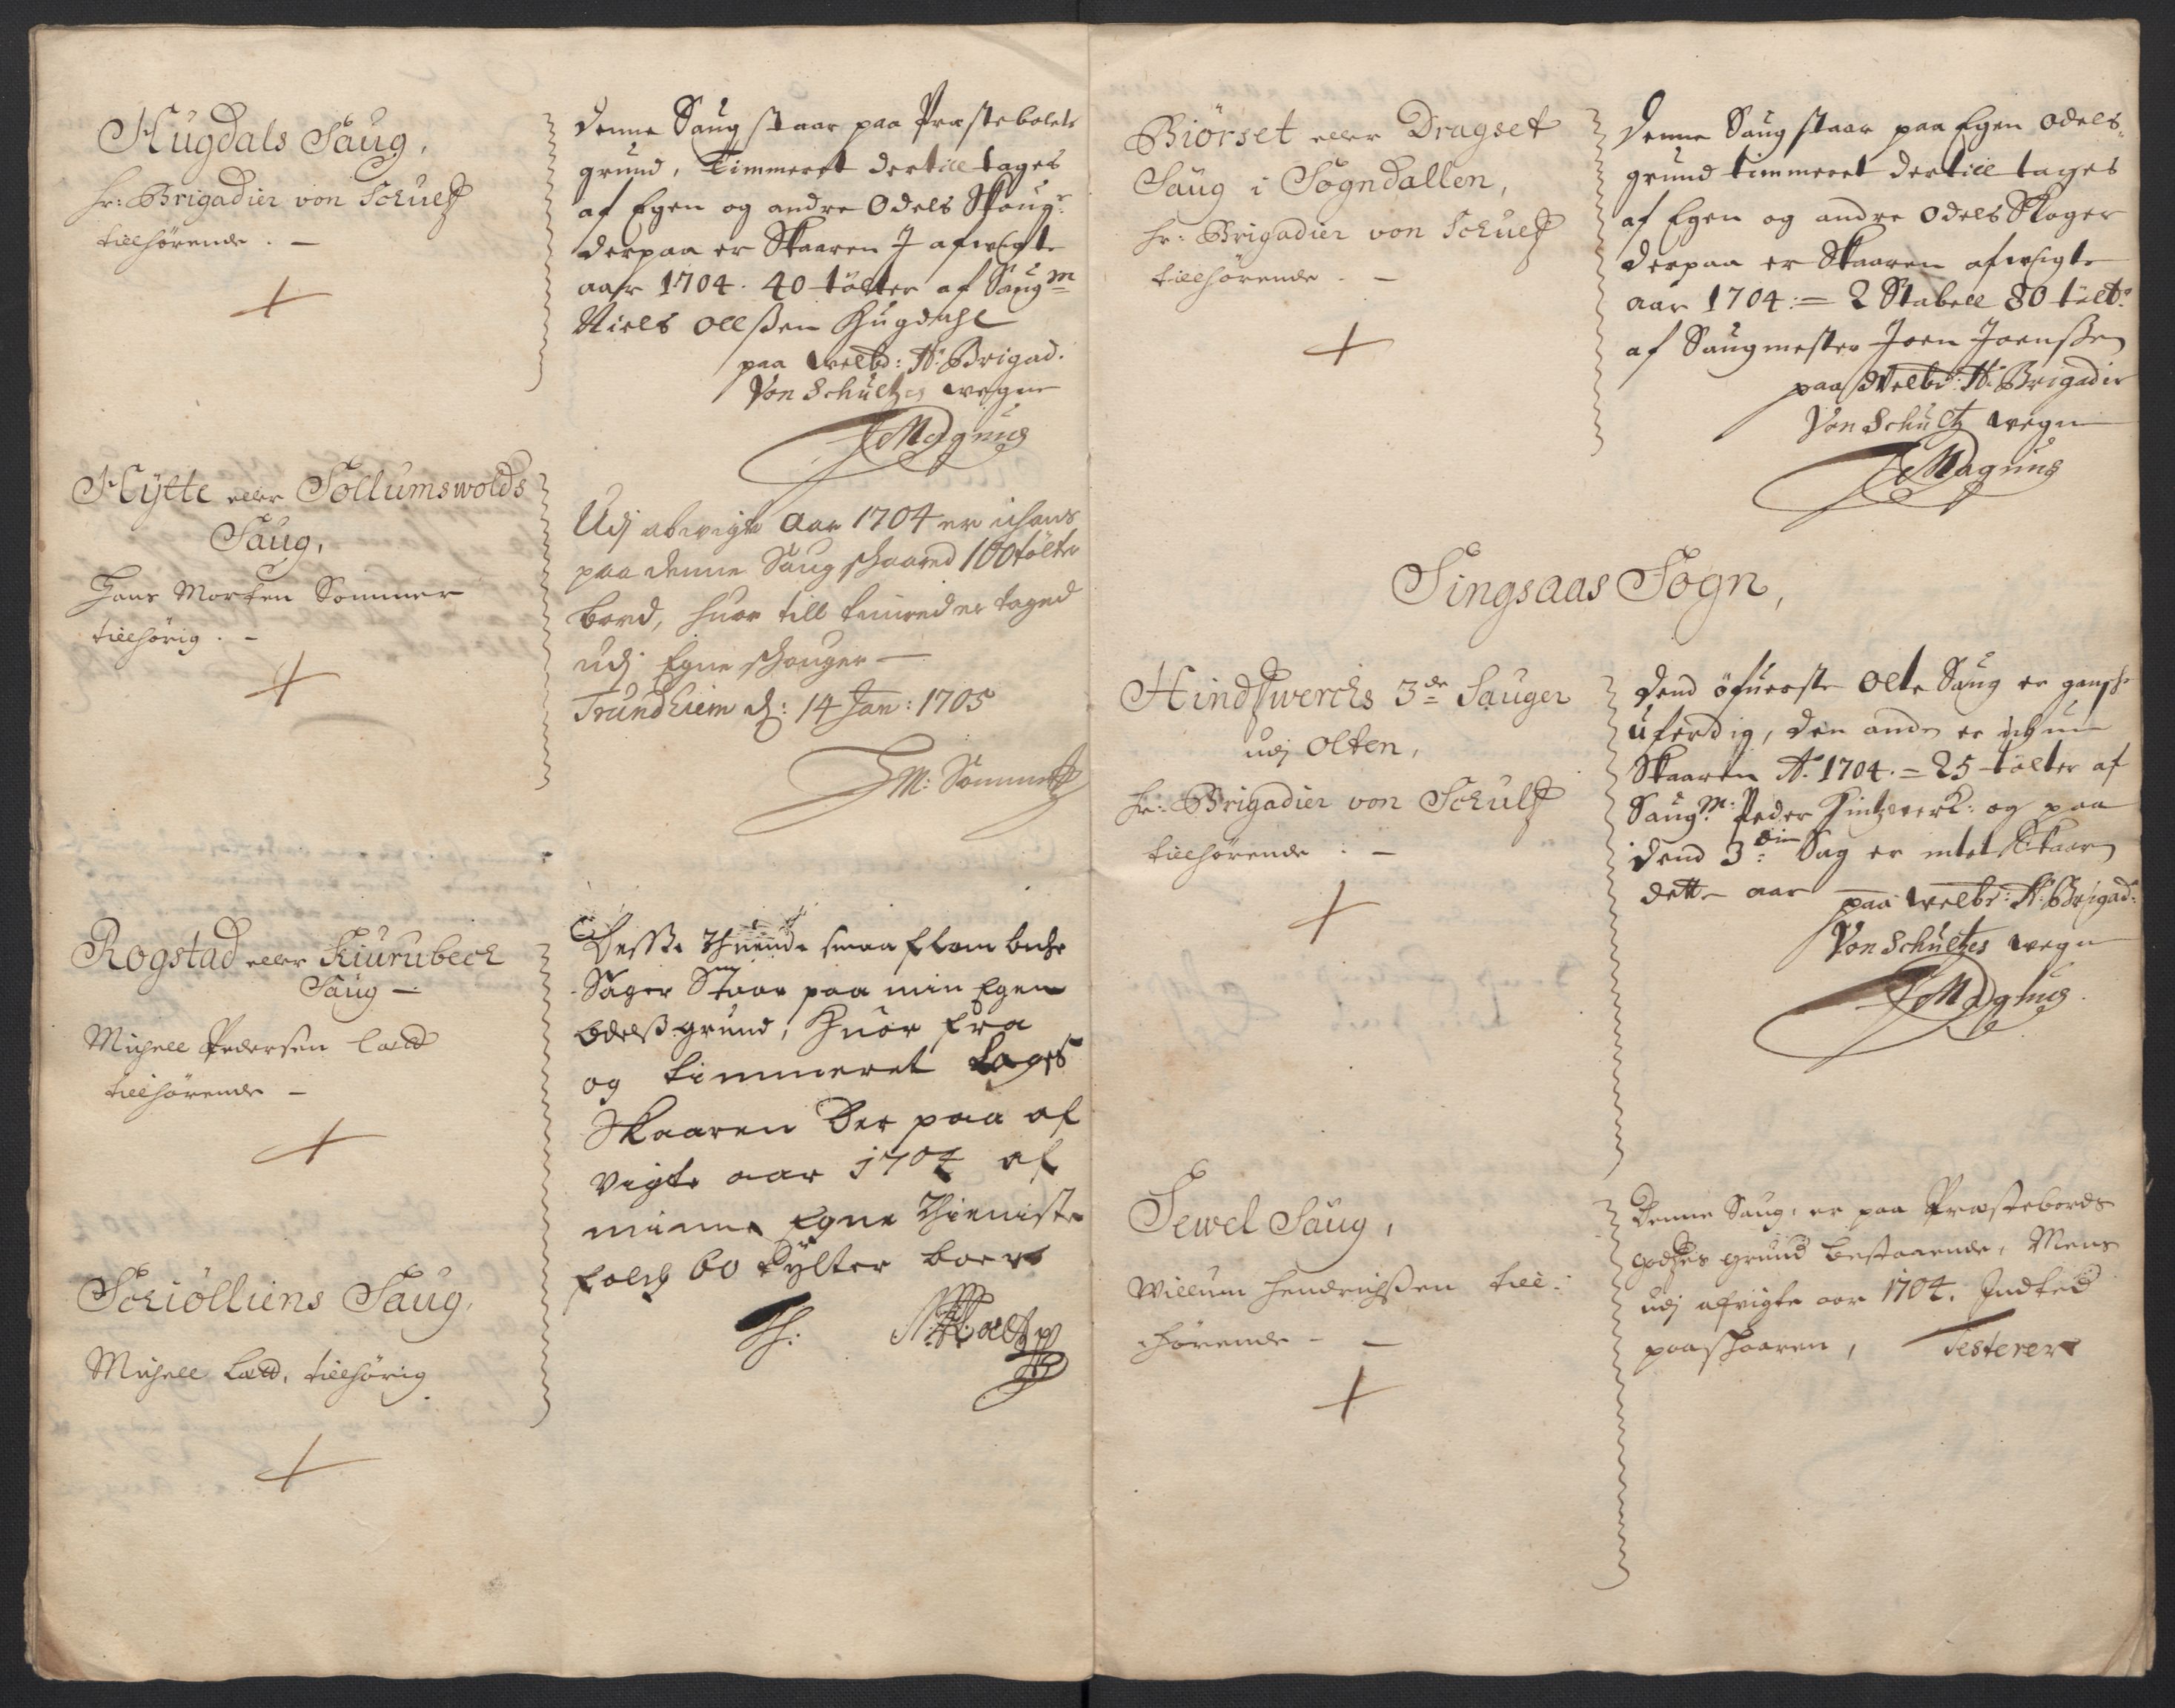 Hugdals Saug,
hr: Brigadier von Schultz
tilhørende. -
denne Saug staar paa Præstebolets
grund, Timmeret dertill tages
af Egen og andre Odels Skoug:
derpaa er Skaaren J afwigte
aar 1704. 40 tölter af Saugm
Niels Ollßen Hugdahl
paa welbd: Hr Brigad.
Von Schultzes wegne
JMagnus
Hÿtte eller Sollumswolds
Saug,
Hans Morten Sommer
tilhörig. -
Udj abvigte Aar 1704 er
paa denne Saug schaared 100 tölter
bord, huor till timred er taged
udj Egne schouger -
Trundhiem d: 14 Jan: 1705
HM: Sommer
Rogstad eller Kiurubech
Saug -
Michell Pedersen
tilhørende -
Desse tuende smaa flom beche
Sager Staar paa min Egen
odelß grund, huor fra
og timmeret tages
Skaaren Der paa af
vigte aar 1704 af
minne Egne thieniste
folch 60 tylter boer
Schiölliens Saug,
Michell tilhörig
Biörset eller Dragset
Saug i Sogndallen,
hr: Brigadier von Schultz
tillhørende. -
denne Saug staar paa Egen odels
grund timmeret dertill tages
af Egen og andre Odels Skoger
derpaa er Skaaren afwigte
aar 1704 := 2 Stabell 80 tölt:
af Saugmester Joen Joenßen
paa Welbr: Hr Brigadir
Von Schultz wegne
JMagnus
Singsaas Sogn,
Hindswerchs 3de Sauger
udj Olten,
hr: Brigadier von Schultz
tillhørende : -
dend öfuerste Olte Saug er gandsk
uferdig, den anden er
Skaaren Ao 1704. = 25 tölter af
Saugm: Peder Hintzwerk: og paa
dend 3die Sag er intet Skaaren
dette aar
paa welbr: Hr: Brigad:
Von Schultzes wegne
JMagnus
Sewel Saug,
Willum Hendrichßen till:
hørende - -
Denne Saug, er paa Præstebords
godses grund bestaaende, Mens
udj afvigte aar 1704. Indted
paaschaaren, Testerer